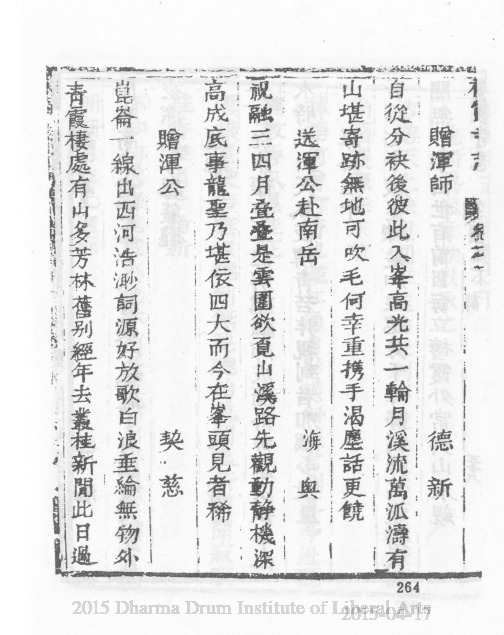 贈渾師　德新
自從分袂後彼此入峯高光共一輪月溪流萬派濤有
山堪寄跡無地可吹毛何幸重携手渴塵話更饒
送渾公赴南岳　海輿
祝融三四月叠叠是雲圍欲覓山溪路先觀動靜機深
高成底事龍聖乃堪依四大而今在峯頭見者稀
贈渾公　契慈
崑崙一線出西河浩渺詞源好放歌白浪垂綸無物外
青霞棲處有山多芳林舊别經年去叢桂新聞此日過
264
2015 Dharma Drum Institute of Liberal Arts
2015-04-17